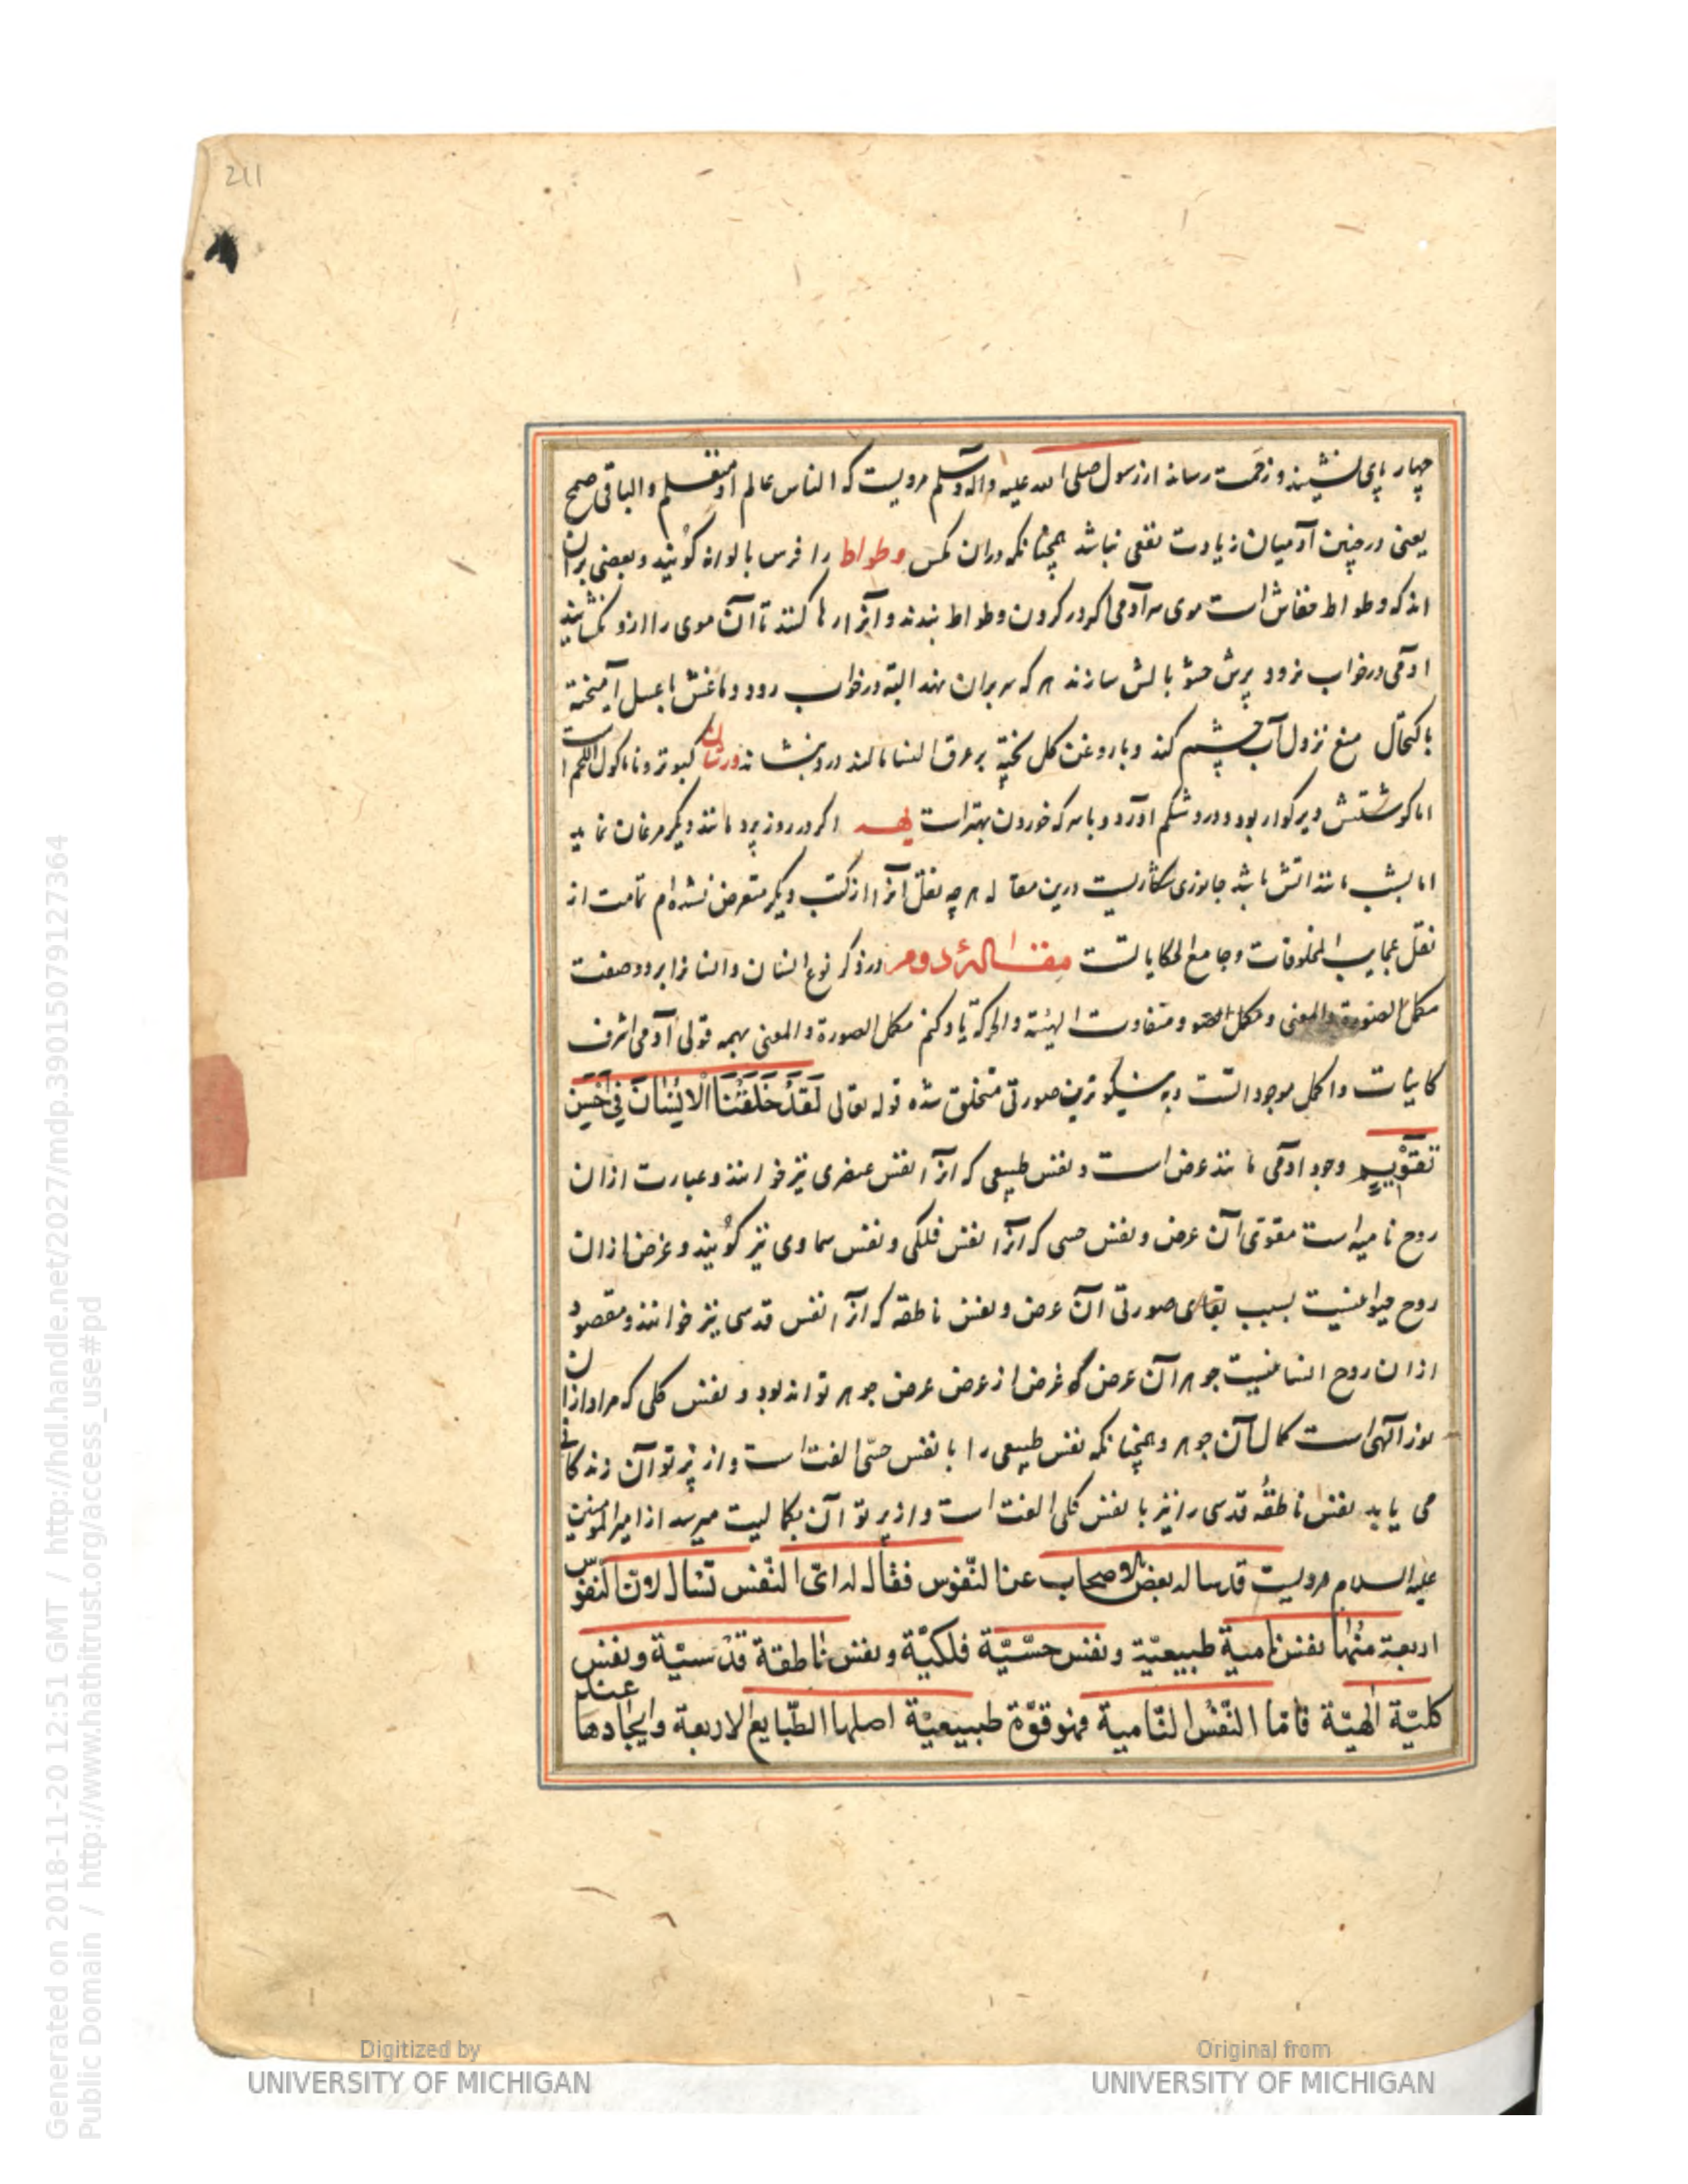 211
چهار پای نشیند و زحمت رساند از رسول صلی الله علیه و آله وسلم مرویست که الناس عالم او متعلم والباقی همج
یعنی در چنین آدمیان زیادت نفعی نباشد همچنانکه در ان مکس وطواط را فرس بالوانه کویند و بعضی بران
اند که وطواط خفاش است موی سر آدمی اکر در کردن وطواط بندند و آنرا رها کنند تا آن موی را ازو نکشایند
ادمی در خواب نرود پرش حشو بالش سازند هر که سر بران نهد البته در خواب رود دماغش با عسل آمیخته
باکتحال منع نزول آب چشم کند و با روغن کل پخته بر عرق النسا مالند درد بنشاند ورشان کبوتر و ماکول اللحم است
اما کوشتش دیر کوار بود و درد شکم اورد و با سرکه خوردن بهتر است اکر در روز پرد مانند دیکر مرغان نماید
اما بشب مانند اتش باشد جانوری درین مقاله هر چه نقل آنرا از کتب دیکر متعرض نشده‌ام تمامت از
نقل عجایب المخلوقات و جامع الحکایاتست مقالۀ دوم در ذکر نوع انسان و انسانرا بر دو صفت
مکمل الصورة والمعنی و مکمل و متفاوت الهیئة والحرکة یاد کنم مکمل الصورة والمعنی بهمه قولی آدمی اشرف
کاینات و اکمل موجوداتست و به نیکوترین صورتی متخلق شده قوله تعالی لَقَدْ خَلَقْنَا الْاِنْسَانَ فِی اَحْسَنِ
تَقْوِیمٍ وجود ادمی مانند عرض است و نفس طبیعی که انرا نفس عنصری نیز خوانند و عبارت ازان
روح نامیه است مقوی آن عرض و نفس حسی که انرا نفس فلکی و نفس سماوی نیز کویند و غرض ازان
روح حیوانیست بسبب بقای صورتی آن عرض و نفس ناطقه که انرا نفس قدسی نیز خوانند و مقصود
ازان روح انسانیست جوهر آن عرض که غرض از عرض عرض جوهر تواند بود و نفس کلی که مراد ازان
نور آلهی است کمال آن جوهر و همچنانکه نفس طبیعی را با نفس حسّی الفت است و از پرتو آن زندکانی
می یابد نفس ناطقه قدسی را نیز با نفس کلی الفت است و از پرتو آن بکمالیت میرسد از امیرالمؤمنین
علیه السلام مرویست قد ساله بعض الاصحاب عن النّفوس فقال له ایّ النّفس تسال لانّ النفوس
اربعة منها نفس نامیة طبیعیّة و نفس حسّیّة فلکیّة و نفس ناطقة قدسیّة و نفس
کلیّة الهیّة فامّا النّفس النّامیة فهو قوّة طبیعیّة اصلها الطّبایع الاربعة وایجادها عند
Digitized by
UNIVERSITY OF MICHIGAN
Original from
UNIVERSITY OF MICHIGAN
Generated on 2018-11-20 12:51 GMT / http://hdl.handle.net/2027/mdp.39015079127364
Public Domain / http://www.hathitrust.org/access_use#pd